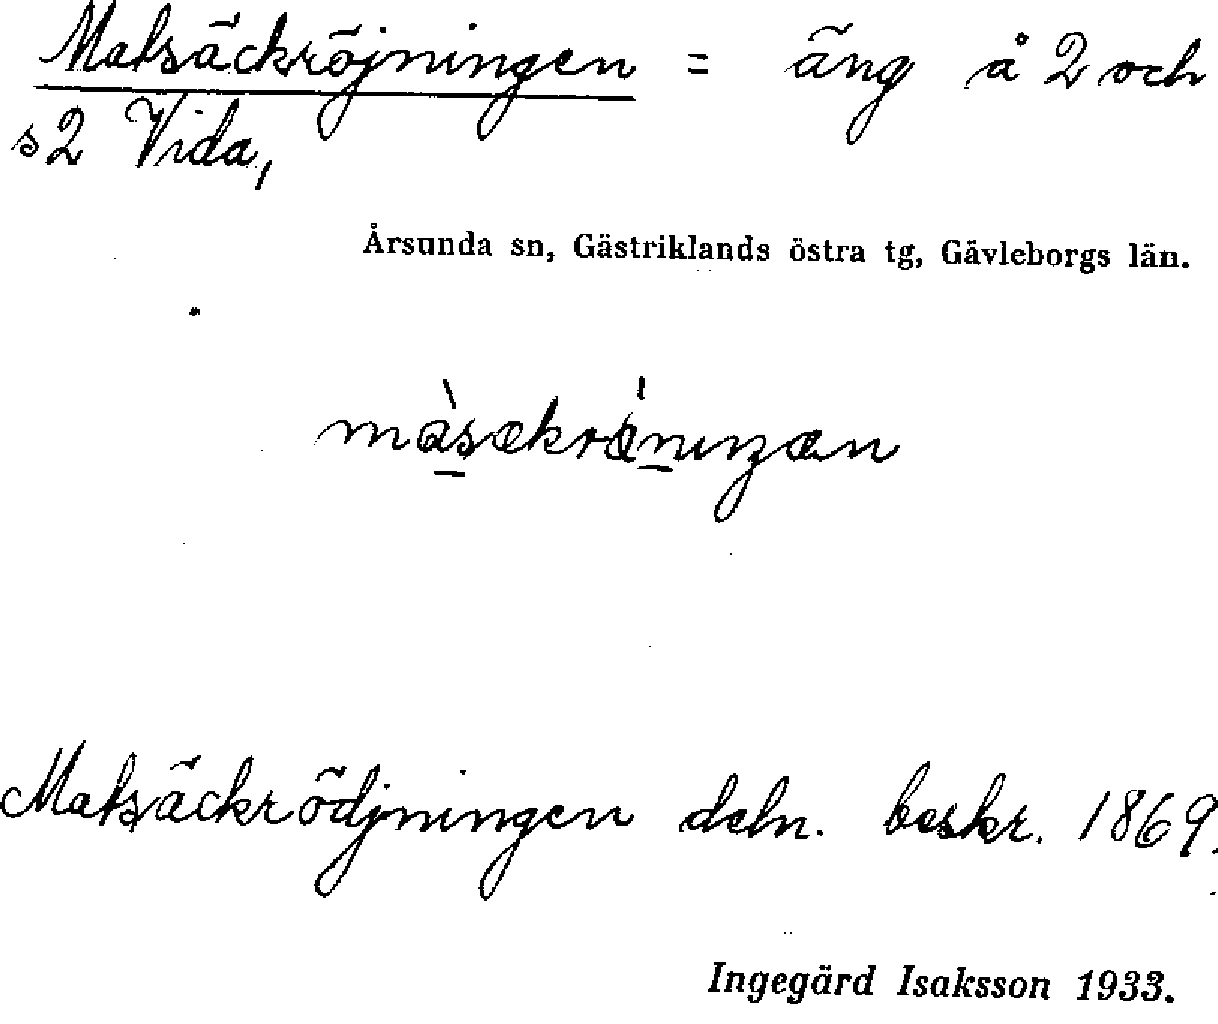 Matsäckröjningen = äng å 2 och
s2 Vida,
Årsunda sn, Gästriklands östra tg, Gävleborgs län.
Matsäckrödjningen deln. beskr. 1869.
Ingegärd Isaksson 1933.